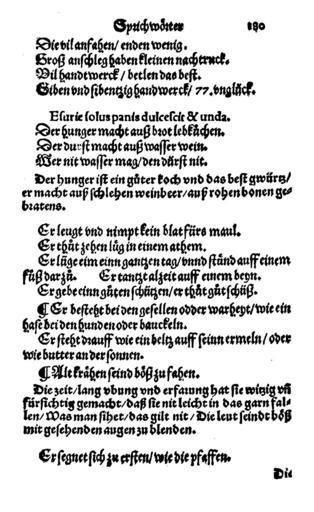 Sprichwörter 180
Die vil anfahen/ enden wenig.
Groß anschleg haben kleinen nachtruck.
Vil handtwerck/ betlen das best.
Siben vnd sibentzig handwerck/ 77. vnglück.
Esurie solus panis dulcescit & unda.
Der hunger macht auß brot lebküchen.
Der durst macht auß wasser wein.
Wer nit wasser mag/ den dürst nit.
Der hunger ist ein güter koch vnd das best gwürtz/
er macht auß schlehen weinbeer/ auß rohen bonen ge-
bratens.
Er leugt vnd nimpt kein blat fürs maul.
Er thůt zehen lüg in einem athem.
Er läge eim ein gantzen tag/ vnnd ständ auff einem
füß darzů. Er tantzt alzeit auff einem beyn.
Er gebe einn gůten schützen/ er thůt gůt schüß.
¶ Er besteht bei den gesellen odder warheyt/ wie ein
hase bei den hunden oder bauckeln.
Er steht drauff wie ein beltz auff seinn ermeln/ oder
wie butter an der sonnen.
¶ Alt krähen seind böß zu fahen.
Die zeit/ lang vbung vnd erfarung hat sie witzig vñ
fürsichtig gemacht/ daß sie nit leicht in das garn fal-
len/ Was man sihet/ das gilt nit/ Die leut seindt böß
mit gesehenden augen zu blenden.
Er segnet sich zu ersten/ wie die pfaffen.
Die